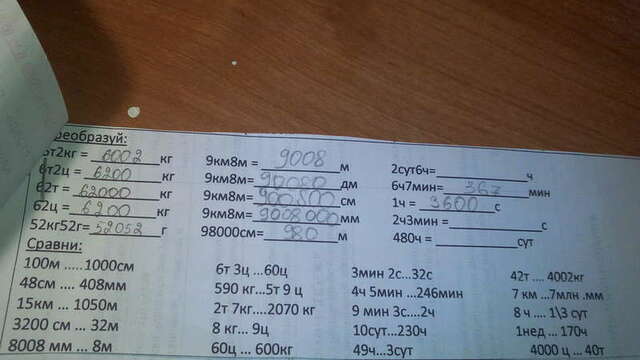 реобразуй:
6т2кг = 6002 кг
6т2ц = 6200 кг
62т = 62000 кг
62ц = 6200 кг
52кг52г= 52052 г
9км8м = 9008 м
9км8м= 90080 дм
9км8м= см
9км8м= 9008000 мм
98000см= 980 м
2сут6ч= ч
6ч7мин= 367 мин
1ч = 3600 с
2ч3мин = с
480ч = сут
Сравни:
100м .....1000см
48см .... 408мм
15км ... 1050м
3200 см ... 32м
8008 мм ... 8м
6т 3ц ...60ц
590 кг...5т 9 ц
2т 7кг....2070 кг
8 кг... 9ц
60ц ... 600кг
3мин 2с...32с
4ч 5мин ...246мин
9 мин 3с....2ч
10сут...230ч
49ч...3сут
42т .... 4002кг
7 км ...7млн .мм
8 ч .... 1\3 сут
1нед ... 170ч
4000 ц ... 40т